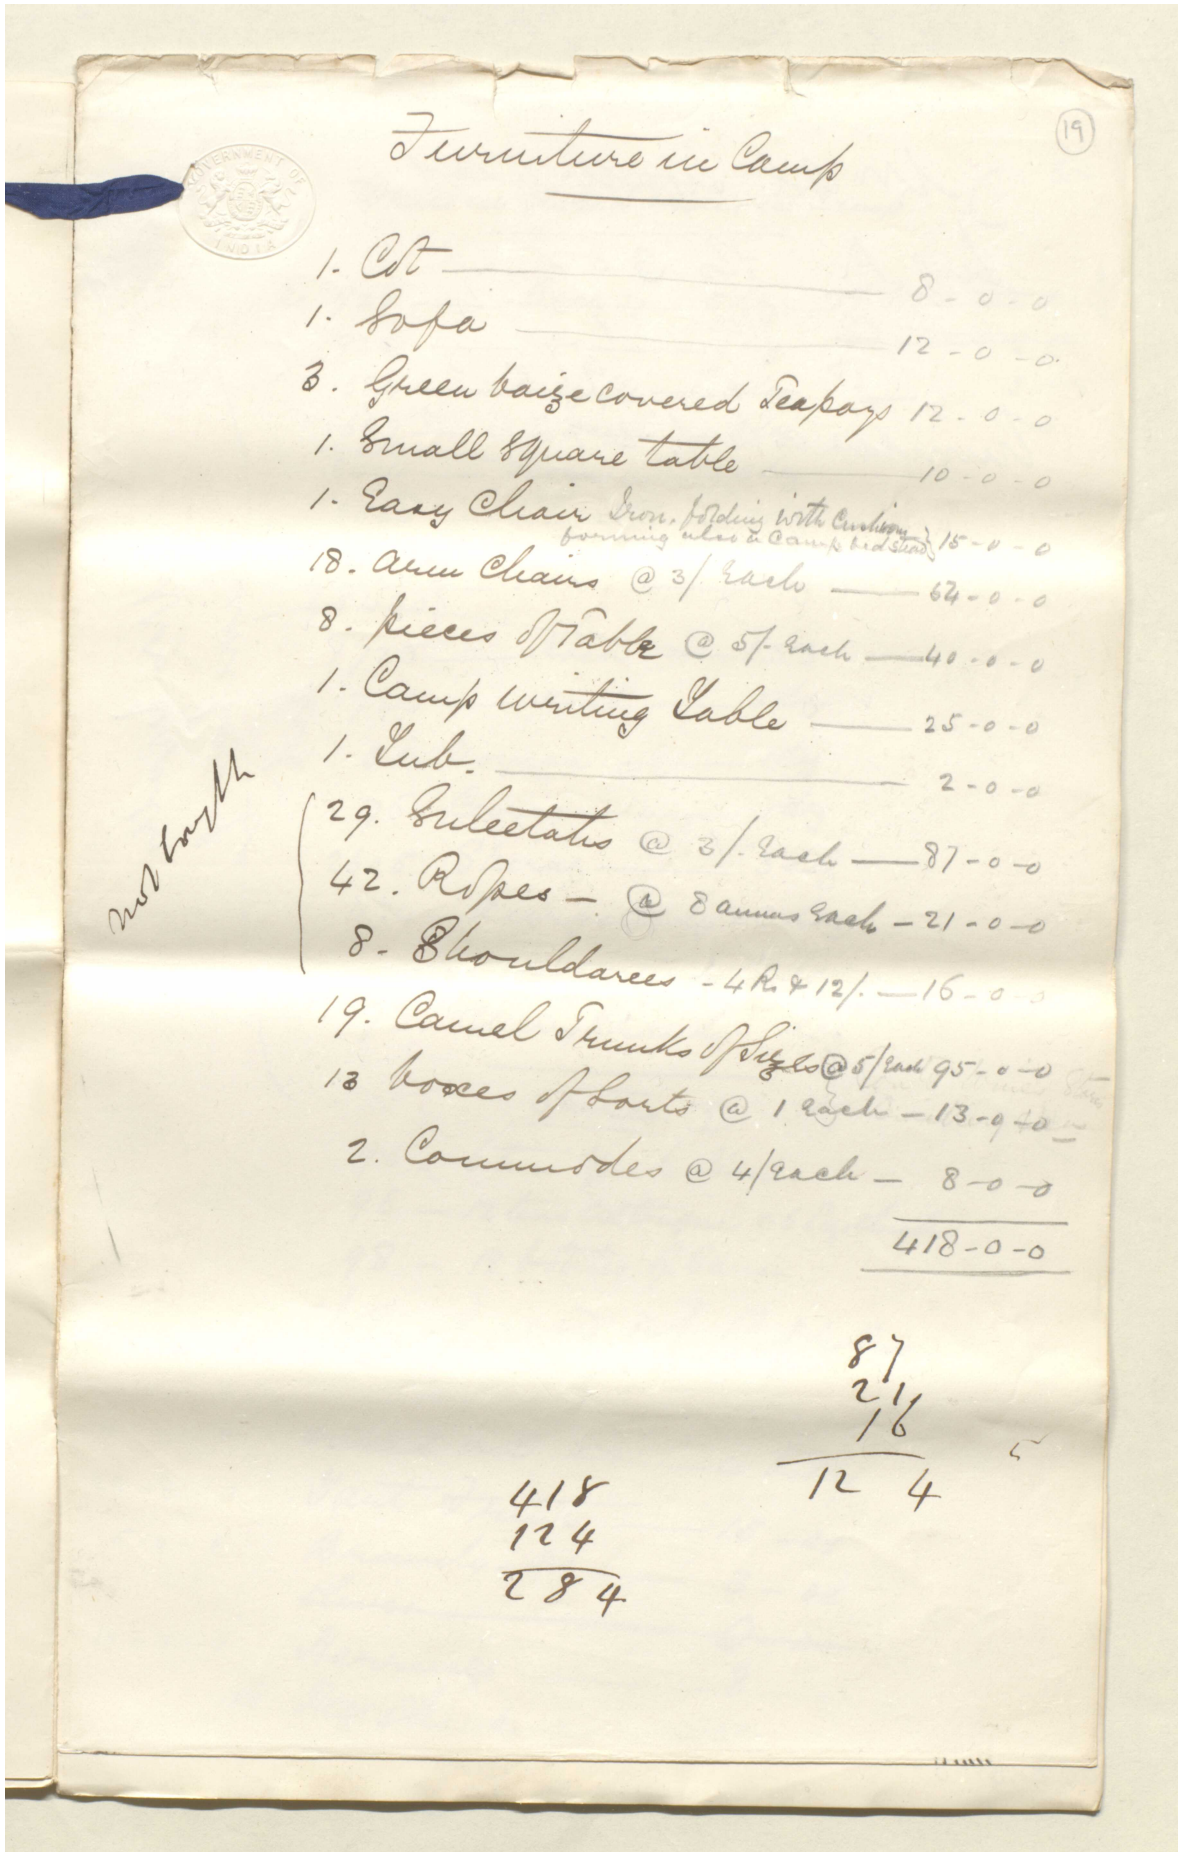 19
Furniture in Camp
GOVERNMENT OF INDIA
1. Cot 8-0-0
1. Sofa 12-0-0
3. Green baize covered Teapoys 12-0-0
1. Small square table 10-0-0
1. Easy Chair Iron, folding with Cushions
forming also a Camp bedstead } 15-0-0
18. Arm Chairs @ 3/ Each 54-0-0
8. pieces of Table @ 5/- Each 40-0-0
1. Camp writing Table 25-0-0
1. Tub. 2-0-0
not bought
29. Suleetahs @ 3/. Each 87-0-0
42. Ropes - @ 8 annas Each - 21-0-0
8. Shouldarees - 4 Rs & 12/. - 16-0-0
19. Camel Trunks of Sizes @ 5/ Each 95-0-0
13 boxes of Sorts @ 1 Each - 13-0-0
2. Commodes @ 4/ Each - 8-0-0
418-0-0
87
21
16
124
418
124
284